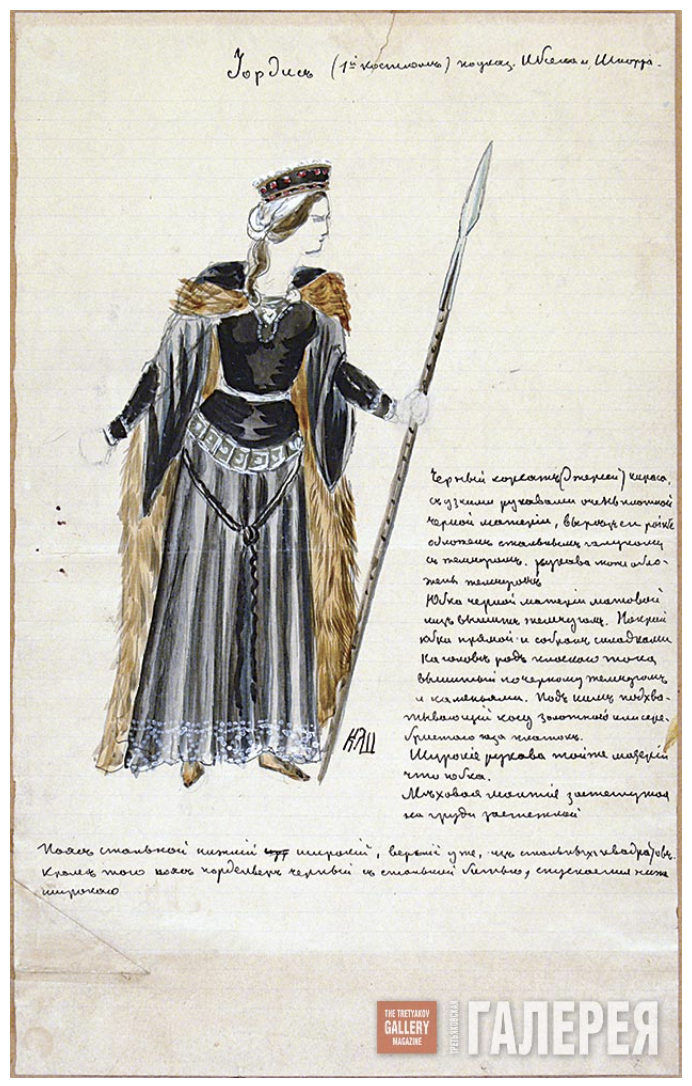 Iордисъ (1й костюмъ)
Черный корсажъ (Джерсей)
съ узкими рукавами очень плотной
черной матерiи, вырѣзъ
обложенъ стальнымъ галуномъ
съ жемчугомъ. рукава тоже обло-
женъ жемчугомъ
Юбка черной матерiи матовой
низъ вышитъ жемчугомъ. Покрой
юбки прямой и собранъ складками
На головѣ родъ плоскаго тока
вышитый по черному жемчугомъ
и каменьями. Подъ нимъ подхва-
тывающiй косу золотного или сере-
бристаго газа платокъ.
Широкiе рукава той же матерiи
что юбка.
Мѣховая мантiя застегнутая
на груди застежкой
НЯШ
Поясъ стальной нижнiй широкiй, верхнiй уже, изъ стальныхъ квадратовъ.
Кромѣ того поясъ кордельеръ черный съ стальной битью, спускается ниже
широкаго
THE TRETYAKOV
GALLERY
MAGAZINE
ТРЕТЬЯКОВСКАЯ
ГАЛЕРЕЯ